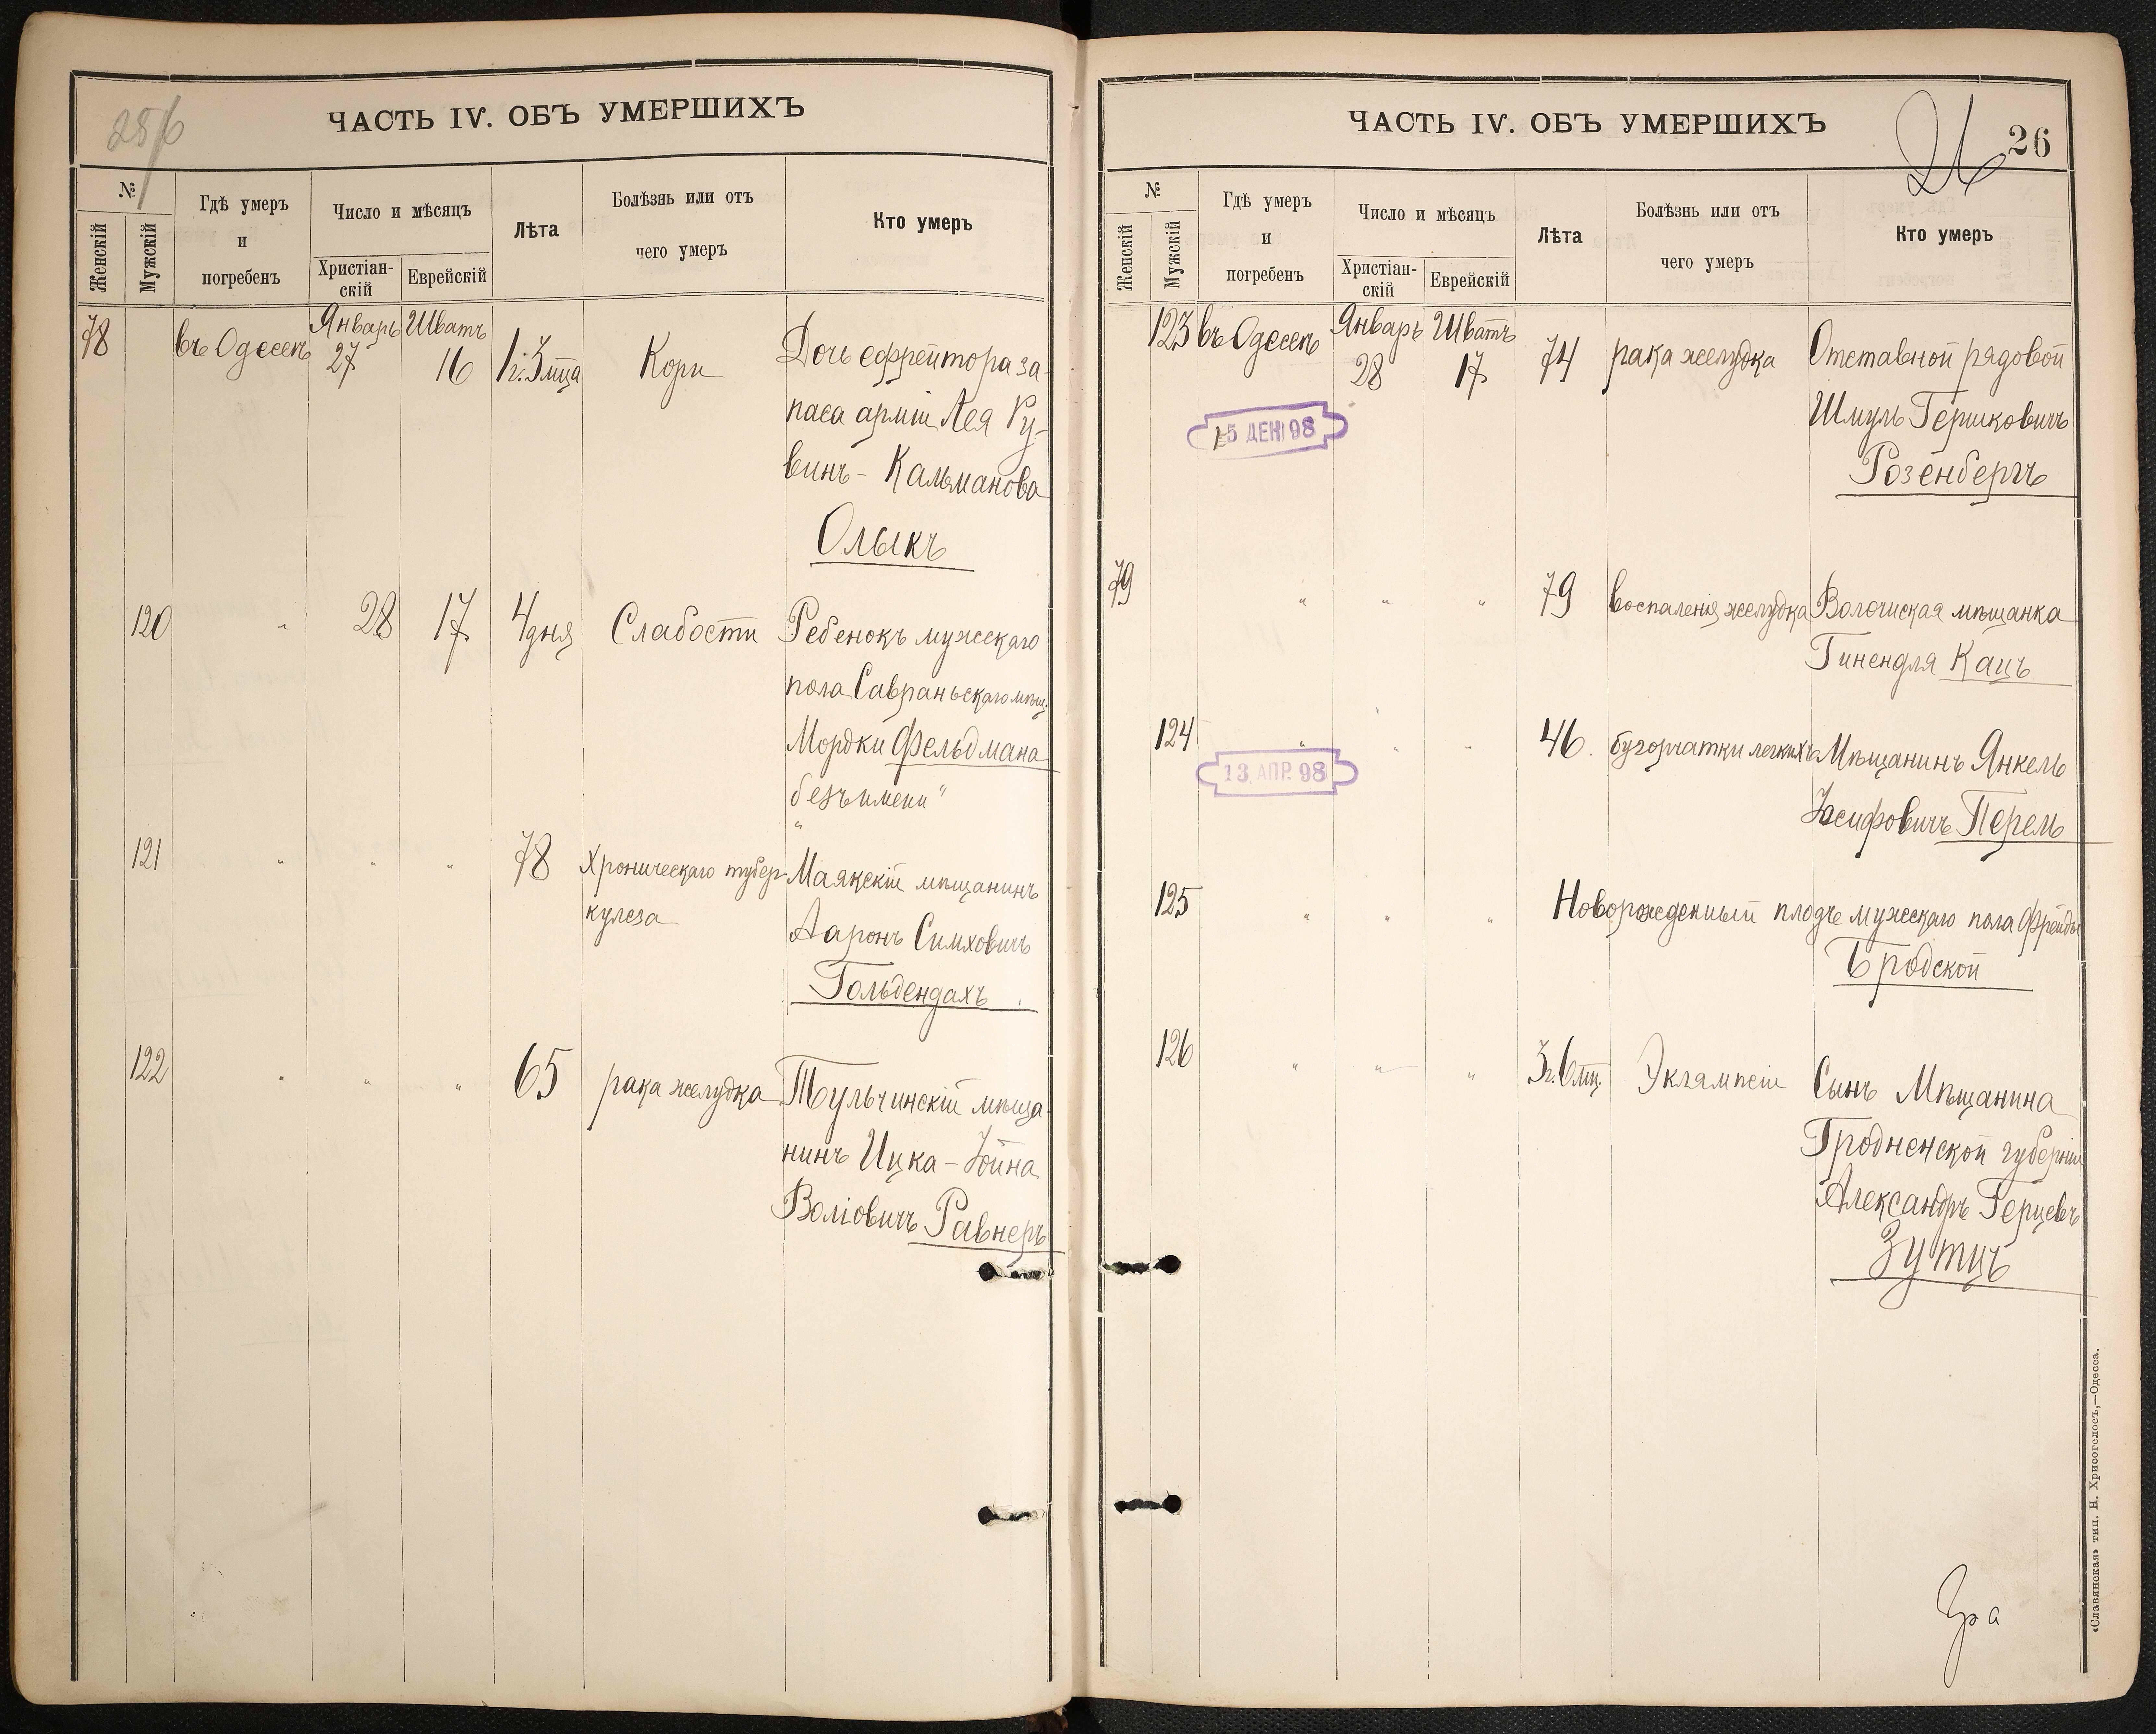 ЧАСТЬ IV. ОБЪ УМЕРШИХЪ
№
Женскій
Мужскій
Гдѣ умеръ
и
погребенъ
Число и мѣсяцъ
Христіан-
скій
Еврейскій
Лѣта
Болѣзнь или отъ
чего умеръ
Кто умеръ
78 въ Одессѣ Январь 27 Шватъ 16 1г. 3 мца Кори Дочь ефрейтора за-
паса арміи Лея Ру-
винъ - Кальманова
Олыкъ
120 " 28 17 4 дня Слабости Ребенокъ мужскаго
пола Савраньскаго мѣщ.
Мордки Фельдмана
безъ имени"
"
121 " " " 78 Хроническаго тубер- Маякскій мѣщанинъ
кулеза Ааронъ Симховичъ
Гольдендахъ
122 " " " 65 рака желудка Тульчинскій мѣща-
нинъ Ицка - Іойна
Воліовичъ Равнеръ
ЧАСТЬ IV. ОБЪ УМЕРШИХЪ
26
26
№
Женскій
Мужскій
Гдѣ умеръ
и
погребенъ
Число и мѣсяцъ
Христіан-
скій
Еврейскій
Лѣта
Болѣзнь или отъ
чего умеръ
Кто умеръ
123 въ Одессѣ Январь 28 Шватъ 17 74 рака желудка Отставной рядовой
Шмуль Гершковичъ
15 ДЕК 98
Розенбергъ
79 " " " 79 воспаленія желудка Волочиская мѣщанка
Гинендля Кацъ
124 " " " 46. бугорчатки легкихъ Мѣщанинъ Янкель
13 АПР. 98
Іосифовичъ Перель
125 " " " Новорожденный плодъ мужскаго пола Фрейды
Бродской
126 " " " 3г. 6 мц. Эклямпсіи Сынъ Мѣщанина
Гродненской губерніи
Александръ Герцевъ
Зутцъ
«Славянская» тип. Н. Хрисогелосъ,—Одесса.